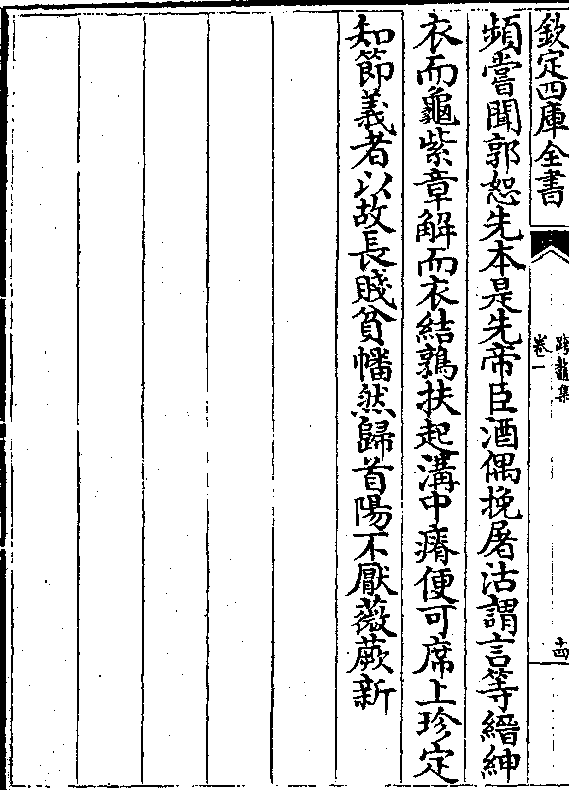 欽定四庫全書
卷一
頻嘗聞郭恕先本是先帝臣酒偶挽屠沽謂言等縉紳
衣而龜紫章解而衣結鶉扶起溝中瘠便可席上珍定
知節義者以故長賤貧幡然歸首陽不厭薇蕨新